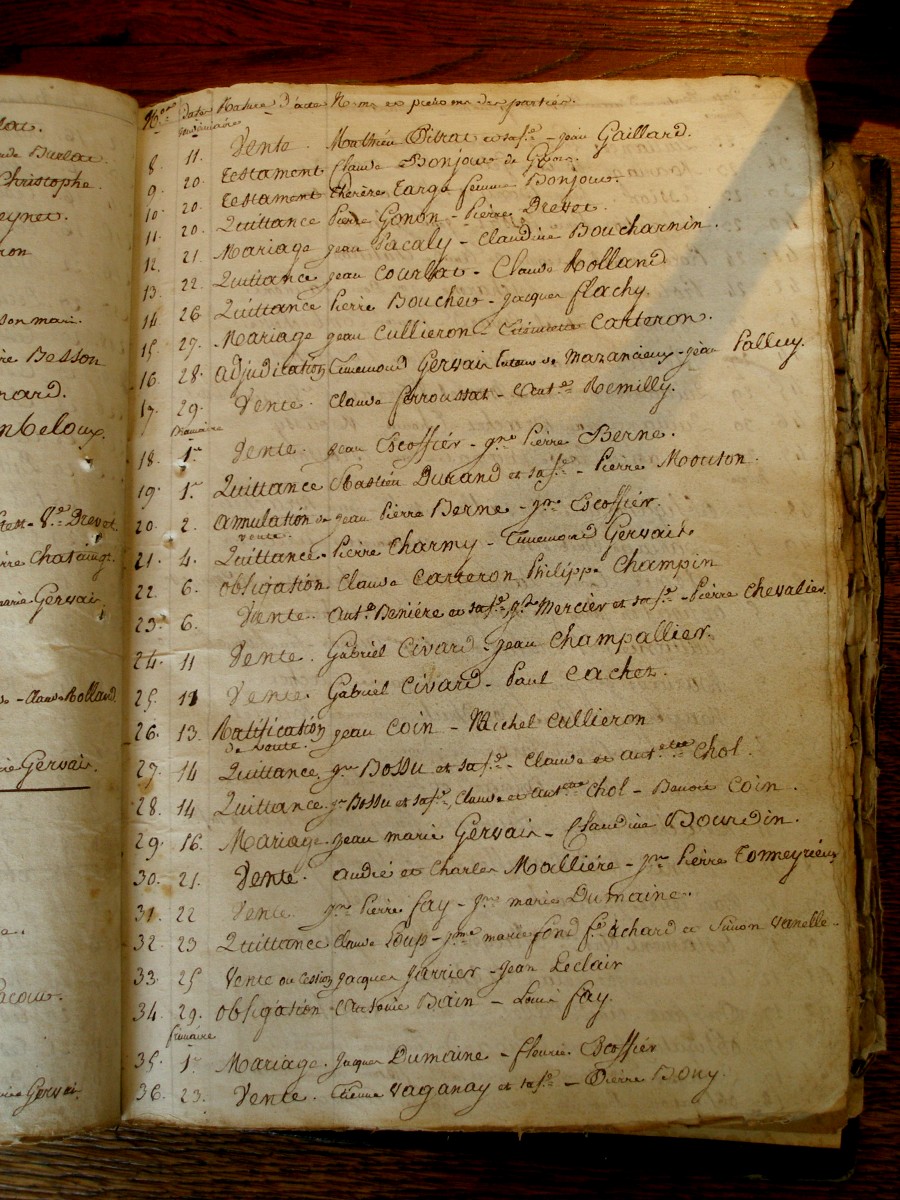 lac.
Burlat.
Christophe.
eynet.
ron
son mari.
re Besson
nard.
mbeloux.
test - V.e Drevet
rre Chataing.
marie Gervais
- Claude Rolland
rie Gervais.
e.
Pacour.
Gervais.
N.os dates Nature D'acte Noms et prenoms des parties.
8. 11. Vente. Mathieu Pitrat et sa f.e - jean Gaillard.
9. 20. testament Claude Bonjour de
10. 20. testament therèse Targe femme Bonjour.
11. 20. Quittance Pierre Gonon - Pierre Drevet.
12. 21. Mariage jean Pacaly - Claudine Boucharnin.
13. 22. Quittance jean Courbat - Claude Rolland
14. 26 Quittance Pierre Boucher - jacques flachy.
15. 27. Mariage jean Cullieron - Carteron.
16. 28. adjudication Ennemond Gervais tuteur de Mazancieux - jean Palluy.
17. 29. Vente. Claude ferroussat - Ant.e Remilly.
Brumaire
18. 1.er Vente. jean Escoffier - jn. Pierre Berne.
19. 1.er Quittance Durand et sa f.e - Pierre Mouton.
20. 2. annulation de jean Pierre Berne - jn. Escoffier.
vente.
21. 4. Quittance. Pierre Charmy - Ennemond Gervais.
22. 6. obligation Claude Carteron Philippe Champin
23. 6. Vente. Ant.e Beniére et sa f.e, Mercier et sa f.e - Pierre Chevalier.
24. 11 Vente. Gabriel Civard - jean Champallier.
25. 11 Vente. Gabriel Civard - Paul Cachet.
26. 13. Ratification jean Coin - Michel Cullieron
de vente.
27. 14 Quittance. Bossu et sa f.e - Claude et ant.ette Chol.
28. 14 Quittance. Bossu et sa f.e, Claude et ant.ette Chol - Benoit Coin.
29. 16. Mariage. jean marie Gervais - Claudine Bourdin.
30. 21. Vente. andré et Charles Mallière - jn. Pierre Tonneyrieux
31. 22 Vente. jn. Pierre fay - jn. marie Dumaine.
32. 23 Quittance Claude Loup - marie fond f.e Achard et Simon Vernelle.
33. 25 Vente ou Cession jacques jarrier - Jean Leclair
34. 29. obligation Antoine Bain - Louis fay.
frimaire
35. 1.er Mariage. jacques Dumaine - fleurie Escoffier
36. 23. Vente. Etienne Vaganay et sa f.e - Pierre Bony.